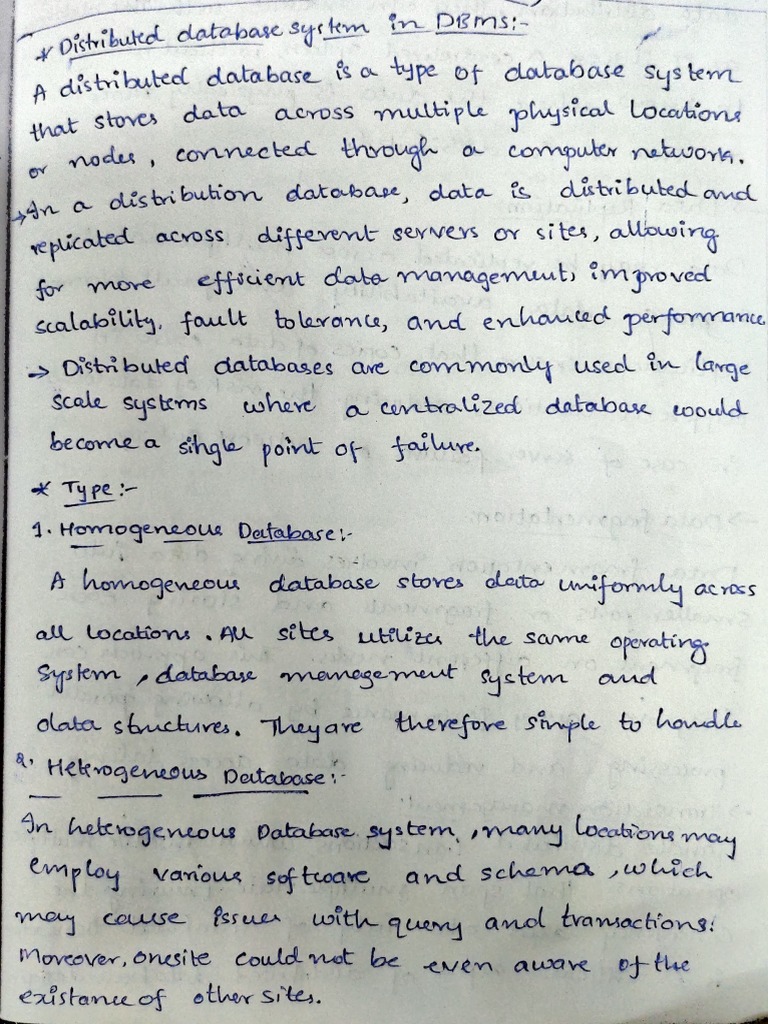 * Distributed database system in DBMS:-
A distributed database is a type of database system
that stores data across multiple physical locations
or nodes, connected through a computer network.
→ In a distribution database, data is distributed and
replicated across different servers or sites, allowing
for more efficient data management, improved
scalability, fault tolerance, and enhanced performance
→ Distributed databases are commonly used in large
scale systems where a centralized database would
become a single point of failure.
* Type:-
1. Homogeneous Database:-
A homogeneous database stores data uniformly across
all locations. All sites utilizes the same operating
system, database management system and
data structures. They are therefore simple to handle
2. Heterogeneous Database:-
In heterogeneous Database system, many locations may
employ various software and schema, which
may cause issues with query and transactions.
Moreover, onesite could not be even aware of the
existance of other sites.